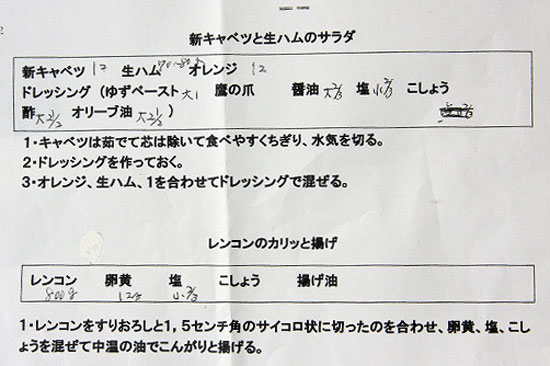 新キャベツと生ハムのサラダ
新キャベツ 12 生ハム 70〜80g オレンジ 12
ドレッシング (ゆずペースト 大1 鷹の爪 醤油 大2/3 塩 小2/3 こしょう
酢 大2 1/2 オリーブ油 大2 1/2 )
1・キャベツは茹でて芯は除いて食べやすくちぎり、水気を切る。
2・ドレッシングを作っておく。
3・オレンジ、生ハム、1を合わせてドレッシングで混ぜる。
レンコンのカリッと揚げ
レンコン 卵黄 塩 こしょう 揚げ油
800g 12 小2/3
1・レンコンをすりおろしと1,5センチ角のサイコロ状に切ったのを合わせ、卵黄、塩、こし
ょうを混ぜて中温の油でこんがりと揚げる。